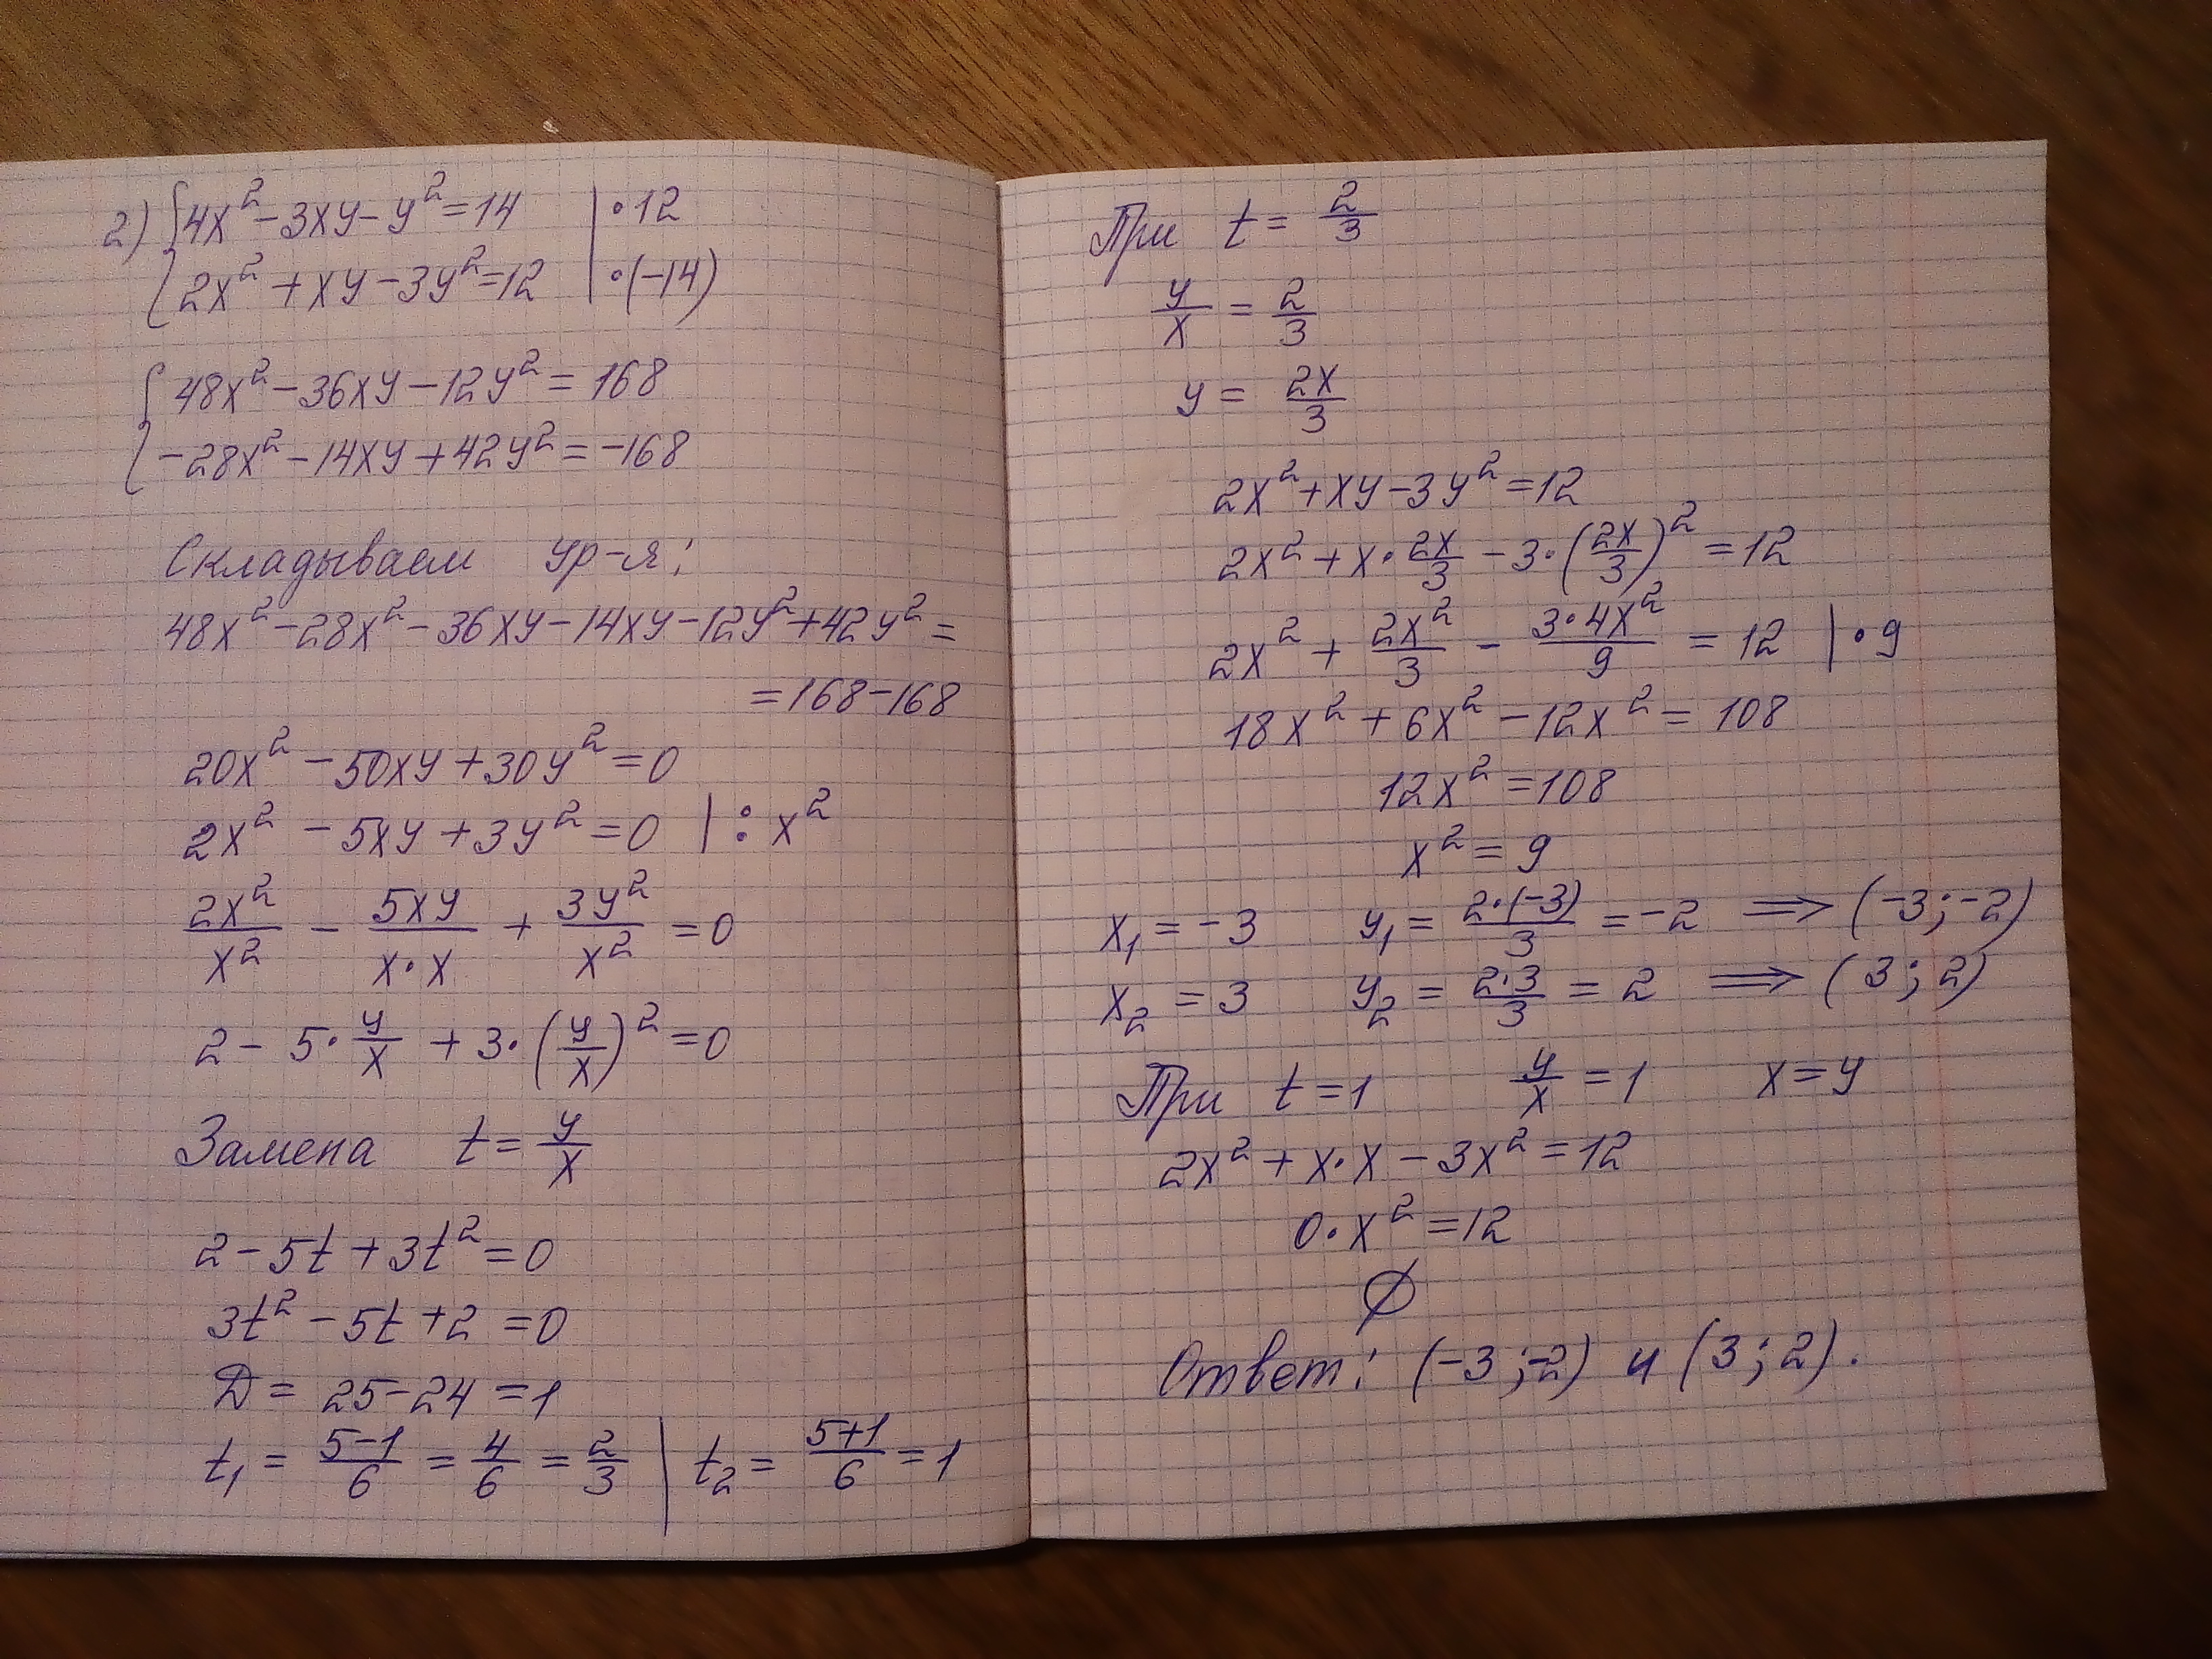 2) { 4x² - 3xy - y² = 14 | · 12
{ 2x² + xy - 3y² = 12 | · (-14)
{ 48x² - 36xy - 12y² = 168
{ -28x² - 14xy + 42y² = -168
Складываем ур-я:
48x² - 28x² - 36xy - 14xy - 12y² + 42y² =
= 168 - 168
20x² - 50xy + 30y² = 0
2x² - 5xy + 3y² = 0 | : x²
2x²/x² - 5xy/x·x + 3y²/x² = 0
2 - 5 · y/x + 3 · (y/x)² = 0
Замена t = y/x
2 - 5t + 3t² = 0
3t² - 5t + 2 = 0
D = 25 - 24 = 1
t₁ = 5-1/6 = 4/6 = 2/3 | t₂ = 5+1/6 = 1
При t = 2/3
y/x = 2/3
y = 2x/3
2x² + xy - 3y² = 12
2x² + x · 2x/3 - 3 · (2x/3)² = 12
2x² + 2x²/3 - 3·4x²/9 = 12 | · 9
18x² + 6x² - 12x² = 108
12x² = 108
x² = 9
x₁ = -3 y₁ = 2·(-3)/3 = -2 ⟹ (-3; -2)
x₂ = 3 y₂ = 2·3/3 = 2 ⟹ (3; 2)
При t = 1 y/x = 1 x = y
2x² + x·x - 3x² = 12
0 · x² = 12
∅
Ответ: (-3; -2) и (3; 2).